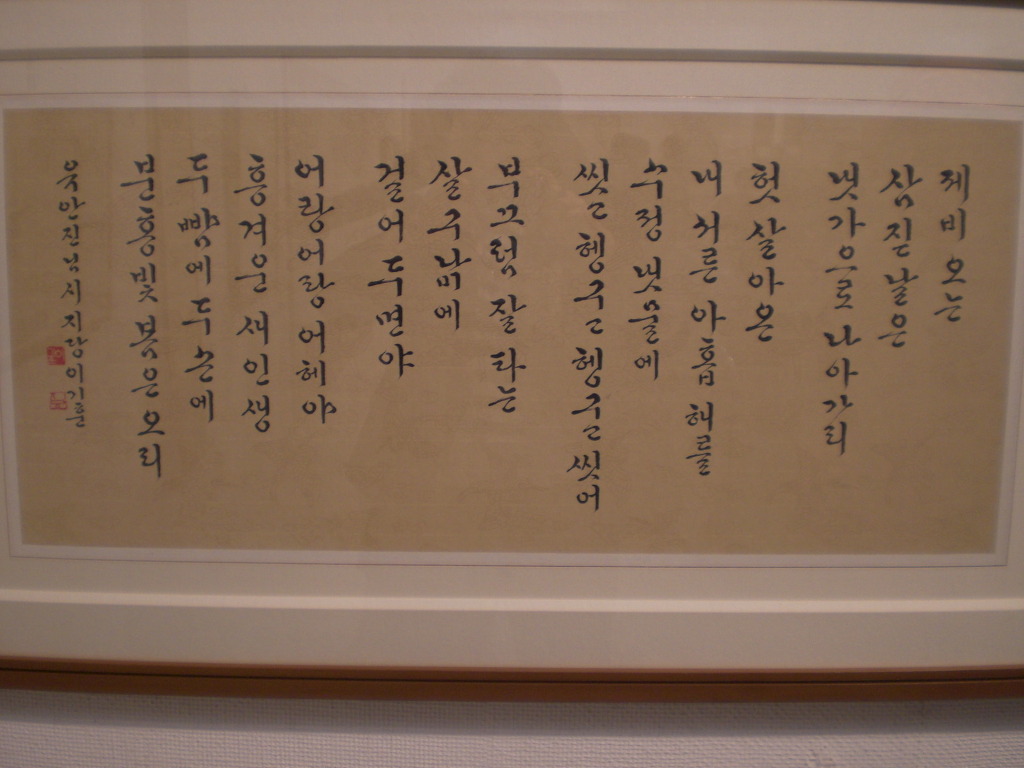 제비 오는
삼짇날은
냇가으로 나아가리
헛살아온
내 서른 아홉 해를
수정 냇물에
씻고 헹구고 헹구고 씻어
부끄럼 잘 타는
살구낢에
걸어 두면야
어랑어랑 어헤야
흥겨운 새 인생
두 뺨에 두 손에
분홍빛 봄은 오리
유안진님 시 지당 이기훈